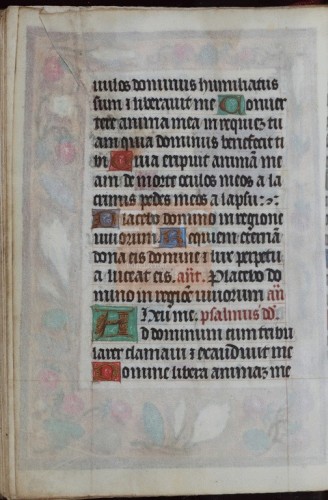 uulos dominus humiliatus
sum ⁊ liberauit me Conuer
tere anima mea in requiē tu
am quia dominus benefecit ti
bi Quia eripuit animā me
am de morte oculos meos a la
crimis pedes meos a lapsu
Placebo domino in regione
uiuorum. Requiem eternā
dona eis domine ⁊ lux perpetu
a luceat eis. añt. Placebo do
mino in regiōe uiuorum añ
Heu me. psalmus dd.
Ad dominum cum tribu
larer clamaui ⁊ exaudiuit me
Domine libera animaʒ me